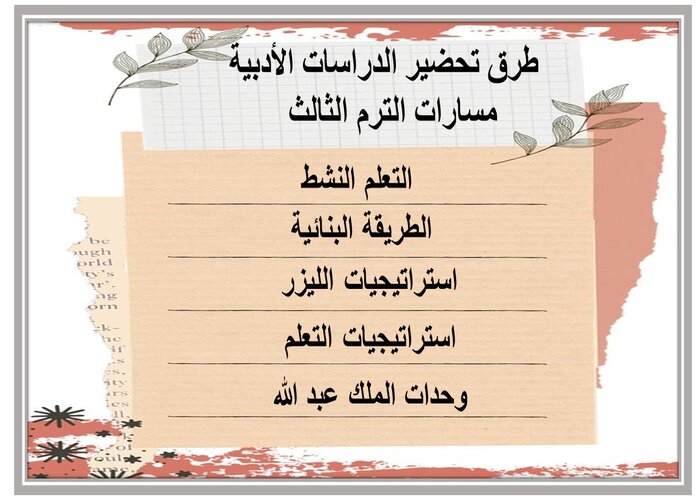 طرق تحضير الدراسات الأدبية
مسارات الترم الثالث
التعلم النشط
الطريقة البنائية
استراتيجيات الليزر
استراتيجيات التعلم
وحدات الملك عبد الله